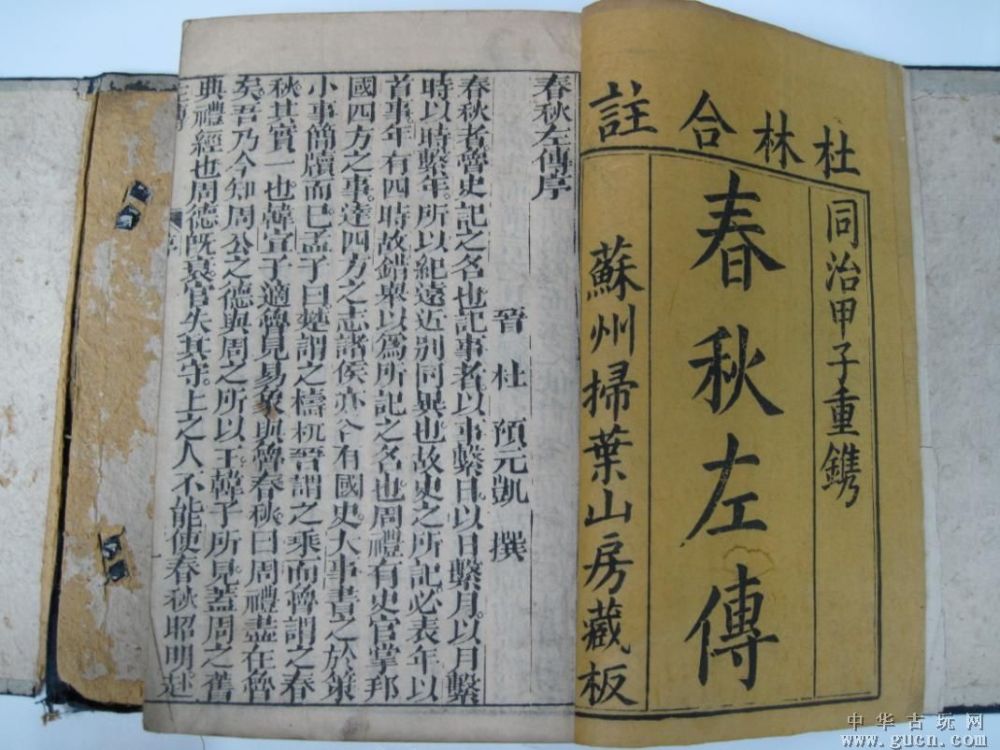 杜林合註
同治甲子重鐫
春秋左傳
蘇州掃葉山房藏板
春秋左傳序
晉 杜 預元凱 撰
春秋者魯史記之名也記事者以事繫日。以日繫月。以月繫
時以時繫年。所以紀遠近别同異也故史之所記必表年以
首事年有四時故錯舉以爲所記之名也周禮有史官掌邦
國四方之事。達四方之志諸侯亦各有國史大事書之於策
小事簡牘而已孟子曰楚謂之檮杌晉謂之乘而魯謂之春
秋其實一也韓宣子適魯見易象與魯春秋曰周禮盡在魯
矣吾乃今知周公之德與周之所以王韓子所見蓋周之舊
典禮經也周德旣衰官失其守。上之人不能使春秋昭明。赴
中华古玩网
www.gucn.com